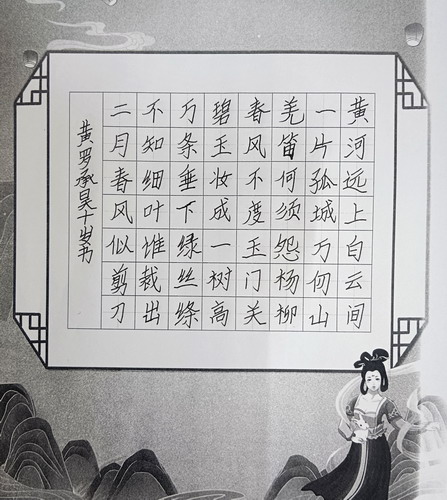 黄河远上白云间
一片孤城万仞山
羌笛何须怨杨柳
春风不度玉门关
碧玉妆成一树高
万条垂下绿丝绦
不知细叶谁裁出
二月春风似剪刀
黄罗承昊十岁书